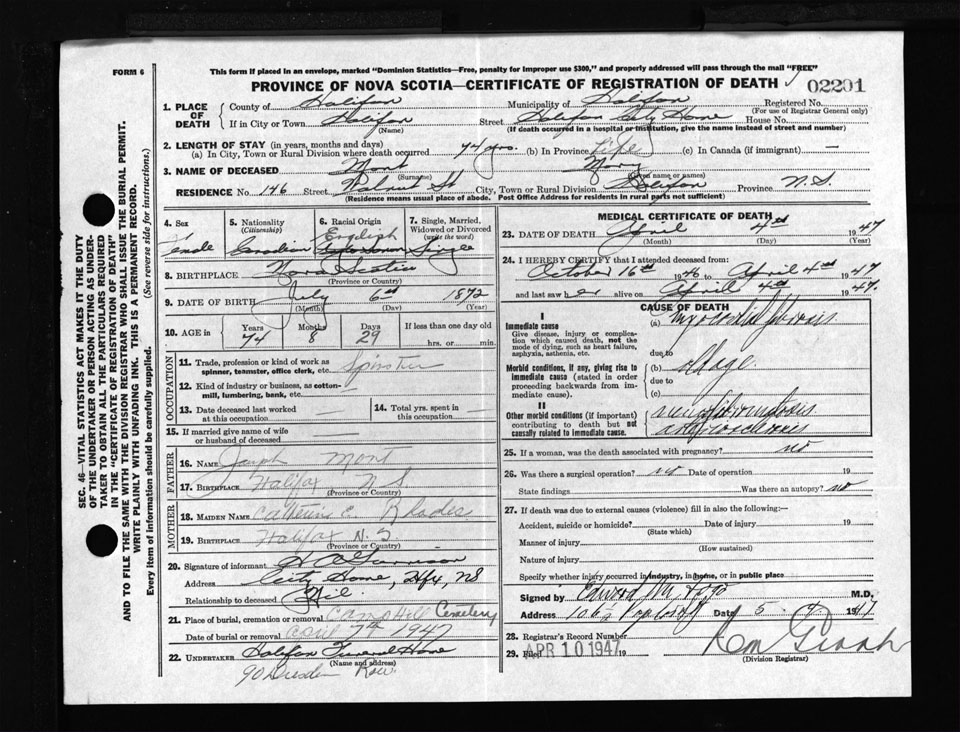 FORM 6
This form if placed in an envelope, marked "Dominion Statistics—Free, penalty for improper use $300," and properly addressed will pass through the mail "FREE"
PROVINCE OF NOVA SCOTIA—CERTIFICATE OF REGISTRATION OF DEATH
02201
1. PLACE OF DEATH
County of Halifax
Municipality of Halifax
Registered No.
(For use of Registrar General only)
If in City or Town Halifax
(Name)
Street Halifax City Home House No.
(If death occurred in a hospital or institution, give the name instead of street and number)
2. LENGTH OF STAY (in years, months and days)
(a) In City, Town or Rural Division where death occurred 74 yrs. (b) In Province Life (c) In Canada (if immigrant) —
3. NAME OF DECEASED Mont Mary
(Surname) (Given name or names)
RESIDENCE No. 146 Street Walnut St City, Town or Rural Division Halifax Province N.S.
(Residence means usual place of abode. Post Office Address for residents in rural parts not sufficient)
4. Sex
Female
5. Nationality
(Citizenship)
Canadian
6. Racial Origin
English
7. Single, Married, Widowed or Divorced
(write the word)
Single
8. BIRTHPLACE Nova Scotia
(Province or Country)
9. DATE OF BIRTH July 6th 1872
(Month) (Day) (Year)
10. AGE in
Years 74
Months 8
Days 29
If less than one day old
hrs. or min.
OCCUPATION
11. Trade, profession or kind of work as spinner, teamster, office clerk, etc. Spinster
12. Kind of industry or business, as cotton-mill, lumbering, bank, etc. —
13. Date deceased last worked at this occupation —
14. Total yrs. spent in this occupation —
15. If married give name of wife or husband of deceased —
FATHER
16. NAME Joseph Mont
17. BIRTHPLACE Halifax N S
(Province or Country)
MOTHER
18. MAIDEN NAME Catherine E. Blades
19. BIRTHPLACE Halifax N. S.
(Province or Country)
20. Signature of informant
Address City Home, Hfx, NS
Relationship to deceased Nil
21. Place of burial, cremation or removal Camp Hill Cemetery
Date of burial or removal April 7th 1947
22. UNDERTAKER Halifax Funeral Home
(Name and address)
90 Dresden Row
MEDICAL CERTIFICATE OF DEATH
23. DATE OF DEATH April 4th 1947
(Month) (Day) (Year)
24. I HEREBY CERTIFY that I attended deceased from:
October 16th 1946 to April 4th 1947
and last saw her alive on April 4th 1947.
CAUSE OF DEATH
I
Immediate cause
Give disease, injury or complication which caused death, not the mode of dying, such as heart failure, asphyxia, asthenia, etc.
(a) myocardial fibrosis
due to
Morbid conditions, if any, giving rise to immediate cause (stated in order proceeding backwards from immediate cause).
(b) old age
due to
(c)
II
Other morbid conditions (if important) contributing to death but not causally related to immediate cause.
arteriosclerosis
25. If a woman, was the death associated with pregnancy? no
26. Was there a surgical operation? no Date of operation 19
State findings Was there an autopsy? no
27. If death was due to external causes (violence) fill in also the following:—
Accident, suicide or homicide? Date of injury 19
(State which)
Manner of injury
(How sustained)
Nature of injury
Specify whether injury occurred in industry, in home, or in public place
Signed by Edward M. M.D.
Address Date 5 4 1947
28. Registrar's Record Number
29. Filed APR 10 1947 19
(Division Registrar)
SEC. 46—VITAL STATISTICS ACT MAKES IT THE DUTY
OF THE UNDERTAKER OR PERSON ACTING AS UNDER-
TAKER TO OBTAIN ALL THE PARTICULARS REQUIRED
IN THE "CERTIFICATE OF REGISTRATION OF DEATH"
AND TO FILE THE SAME WITH THE DIVISION REGISTRAR WHO SHALL ISSUE THE BURIAL PERMIT.
WRITE PLAINLY WITH UNFADING INK. THIS IS A PERMANENT RECORD.
Every item of information should be carefully supplied. (See reverse side for instructions.)